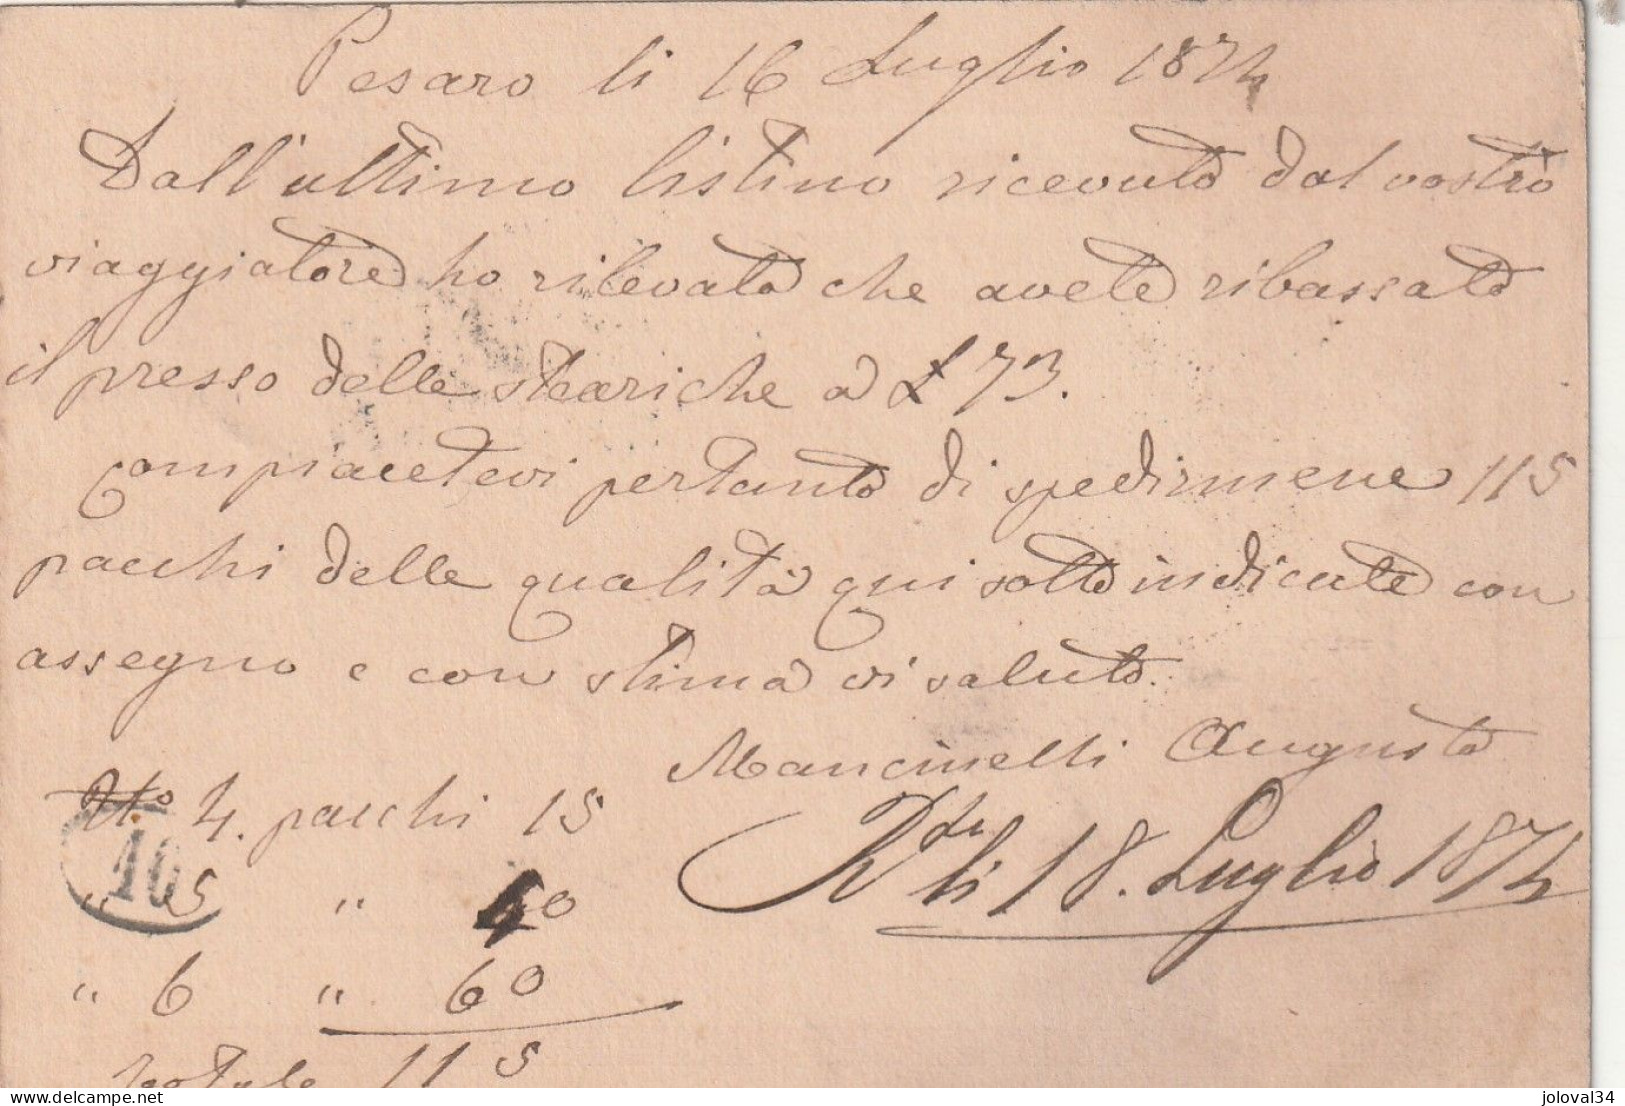 Pesaro li 16 Luglio 1874
Dall'ultimo listino ricevuto dal vostro
viaggiatore ho rilevato che avete ribassato
il presso delle steariche a £ 73.
Compiacetevi pertanto di spedirmene 115
pacchi delle qualità qui sotto indicate con
assegno e con stima vi saluto.
Mancinelli Augusto
N° 4. pacchi 15
" 5 " 40
" 6 " 60
totale 115
li 18. Luglio 1874
10
joloval34